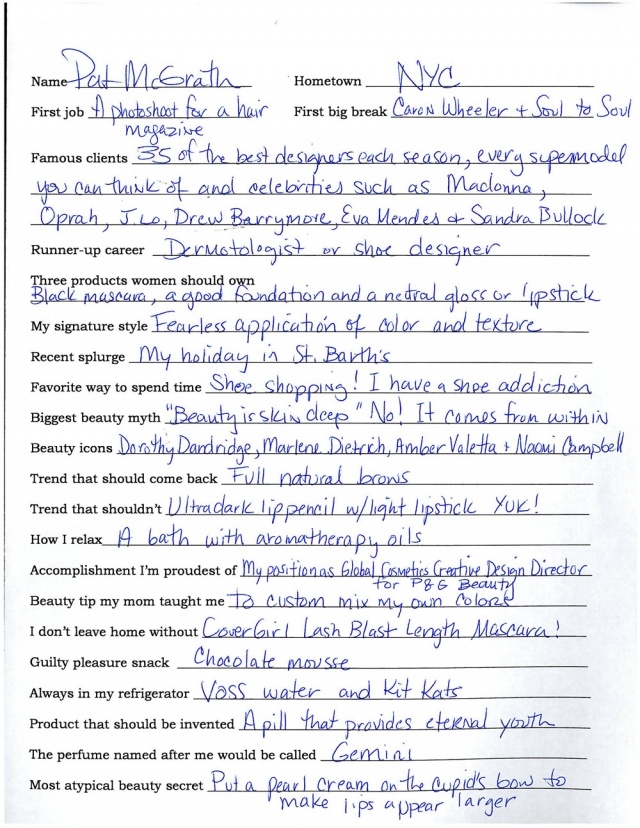 Name Pat McGrath Hometown NYC
First job A photoshoot for a hair First big break Caron Wheeler + Soul to Soul
magazine
Famous clients 35 of the best designers each season, every supermodel
you can think of and celebrities such as Madonna,
Oprah, J.Lo, Drew Barrymore, Eva Mendes & Sandra Bullock
Runner-up career Dermotologist or shoe designer
Three products women should own
Black mascara, a good foundation and a netral gloss or lipstick
My signature style Fearless application of color and texture
Recent splurge My holiday in St. Barth's
Favorite way to spend time Shoe shopping! I have a shoe addiction
Biggest beauty myth "Beauty is skin deep" No! It comes from within
Beauty icons Dorothy Dandridge, Marlene Dietrich, Amber Valetta + Naomi Campbell
Trend that should come back Full natural brows
Trend that shouldn't Ultradark lip pencil w/light lipstick YUK!
How I relax A bath with aromatherapy oils
Accomplishment I'm proudest of My position as Global Cosmetics Creative Design Director
for P&G Beauty
Beauty tip my mom taught me To custom mix my own colors
I don't leave home without CoverGirl Lash Blast Length Mascara!
Guilty pleasure snack Chocolate mousse
Always in my refrigerator Voss water and Kit Kats
Product that should be invented A pill that provides eternal youth
The perfume named after me would be called Gemini
Most atypical beauty secret Put a pearl cream on the cupid's bow to
make lips appear larger